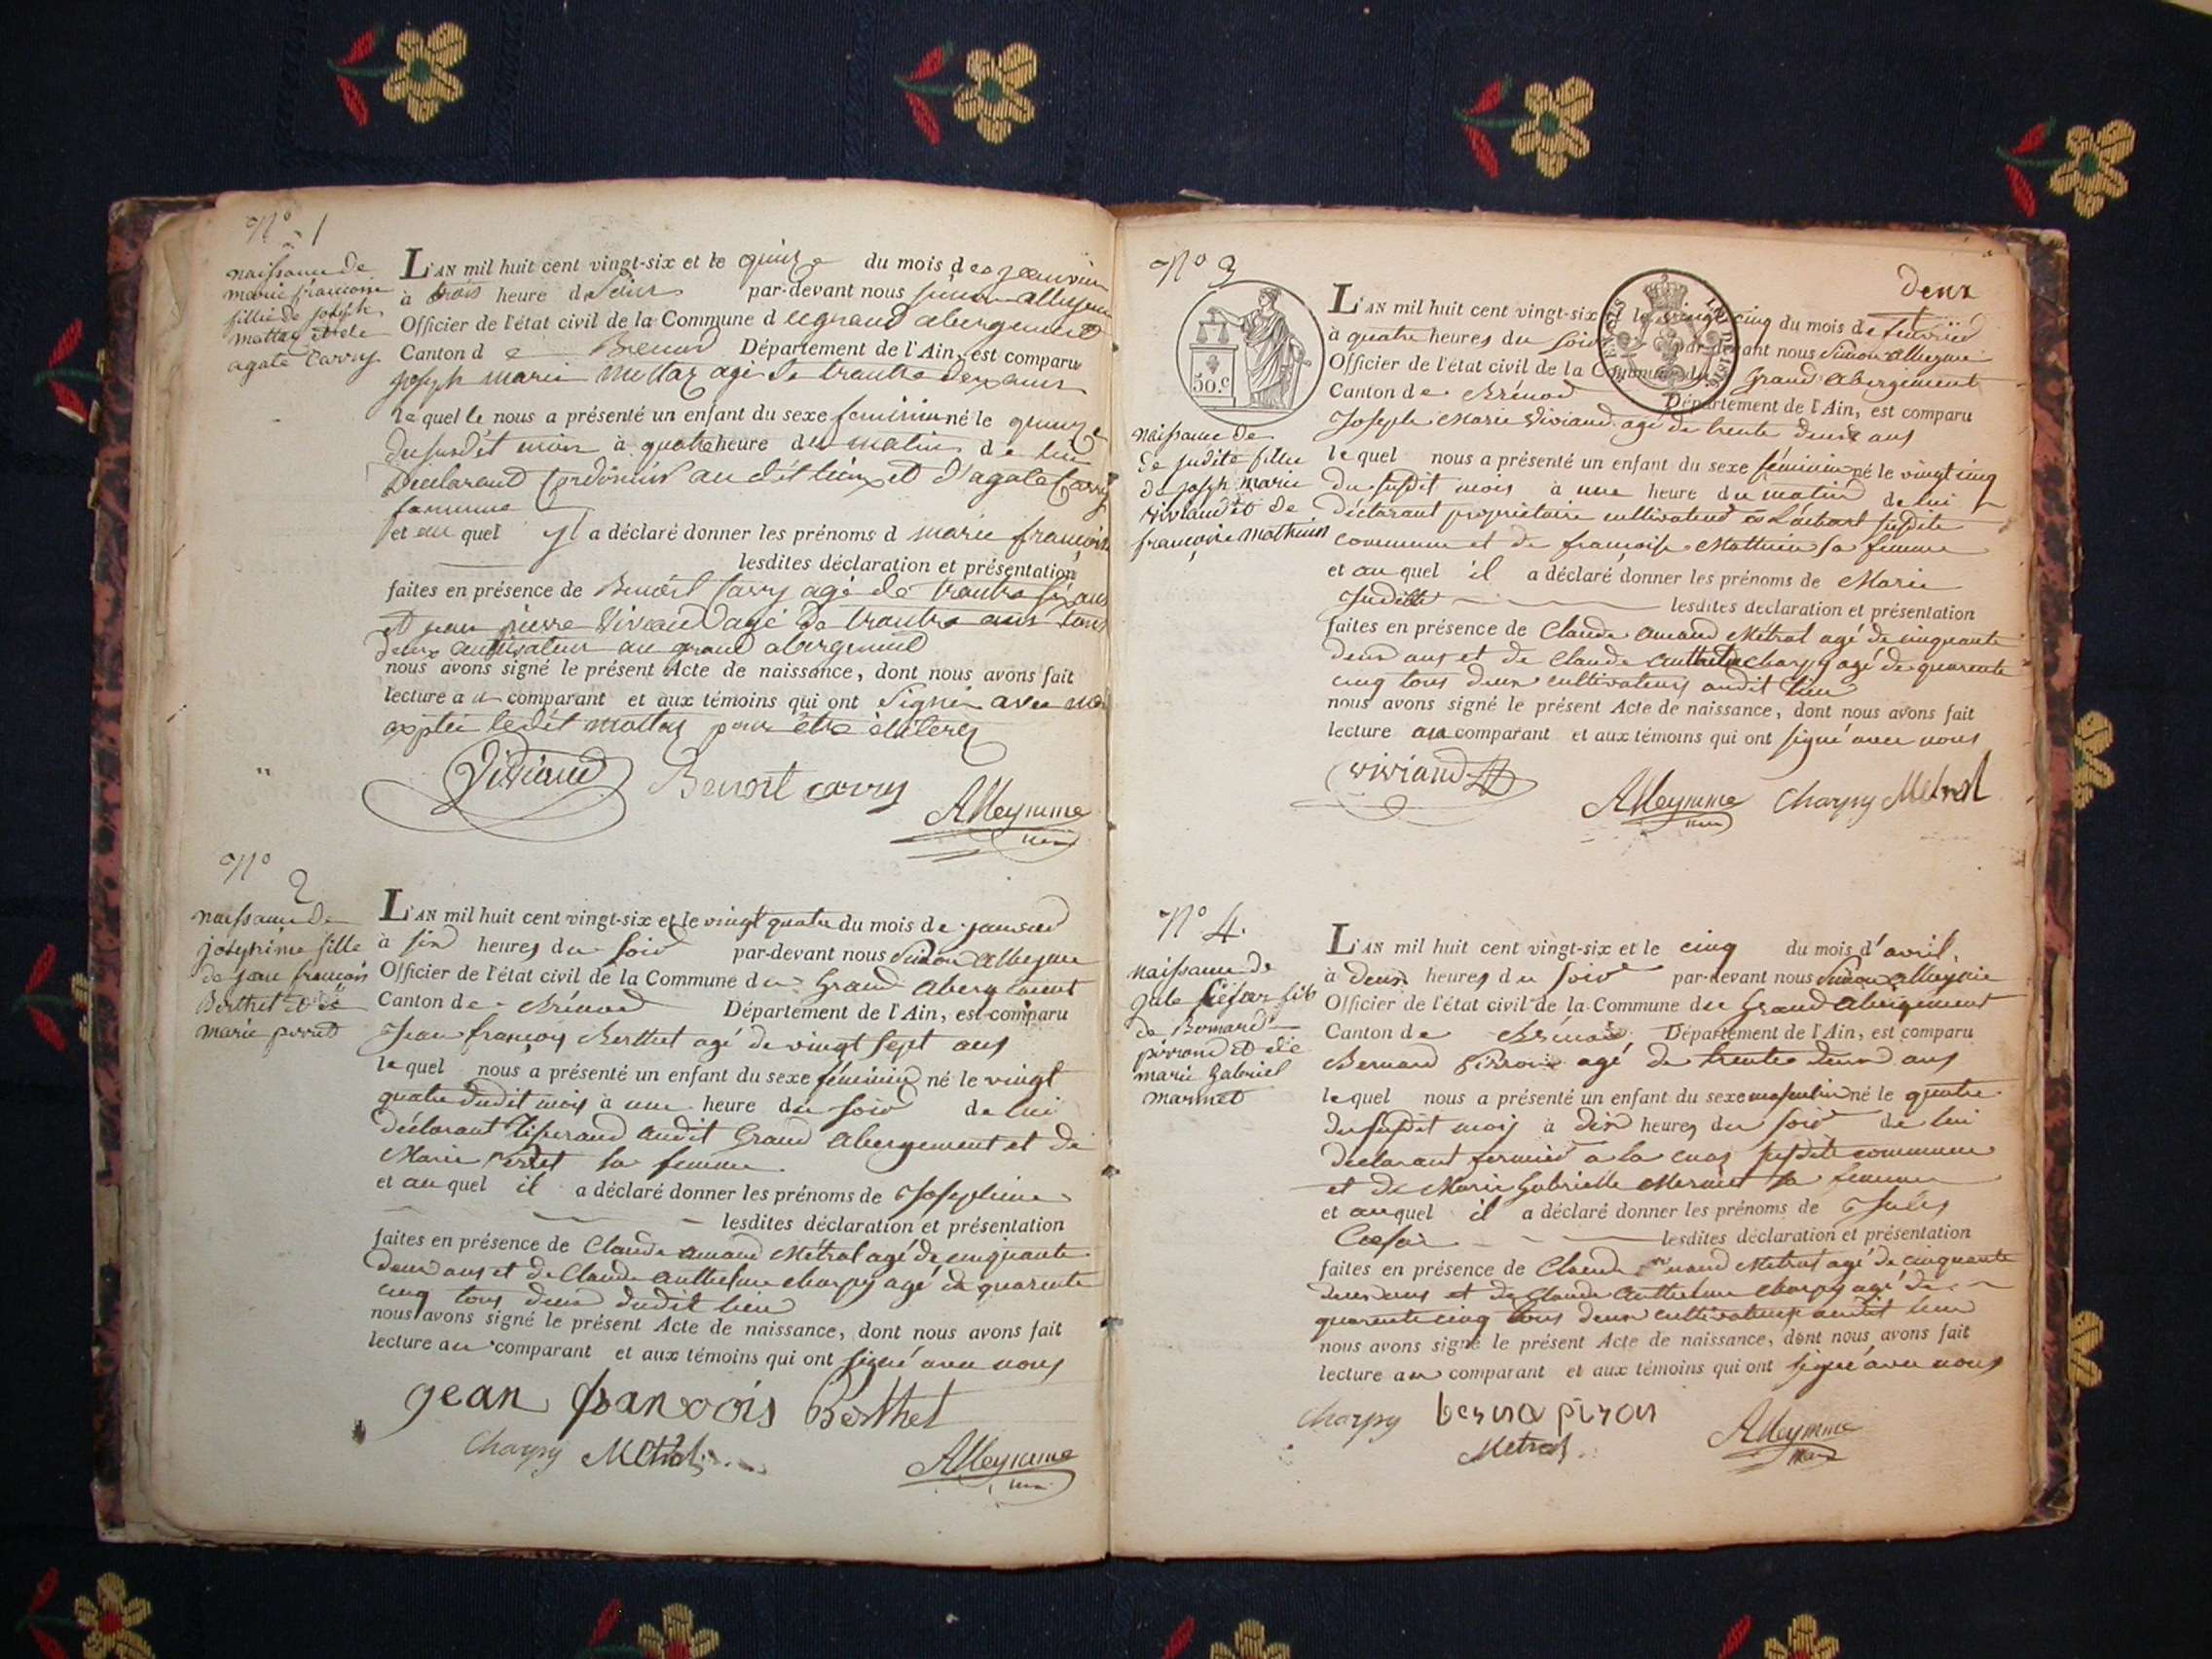 N° 1
naissance de
marie françoise
fillie de joseph
mottaz et de
agate Carry
L'AN mil huit cent vingt-six et le quinze du mois de
à trois heure de Soir par-devant nous simon alleyme
Officier de l'état civil de la Commune d legrand abergement
Canton d e Brenod Département de l'Ain, est comparu
joseph marie mottaz agé de trantte deux ans
lequel le nous a présenté un enfant du sexe feminin né le quinze
du susdit mois à quatre heure du matin de lui
Déclarant Cordonier au dit lieux et d'agate Carry
famme
et au quel il a déclaré donner les prénoms d marie françoise
lesdites déclaration et présentation
faites en présence de Benoit Carry agé de trantte six ans
et jean pierre Viviand agé de trantte ans tous
deux cultivateur au grand abergement
nous avons signé le présent Acte de naissance, dont nous avons fait
lecture au comparant et aux témoins qui ont Signé avec nous
exptée ledit mottaz pour être
Viviand Benoit carry
Alleymme
N° 2
naissance de
josephine fille
de jean francois
Berthet et de
marie perret
L'AN mil huit cent vingt-six et le vingt quatre du mois de janvier
à six heures du soir par-devant nous Simon Alleyme
Officier de l'état civil de la Commune du Grand Abergement
Canton de Brénod Département de l'Ain, est comparu
Jean françois Berthet agé de vingt sept ans
lequel nous a présenté un enfant du sexe féminin né le vingt
quatre dudit mois à une heure du soir de lui
déclarant Tisserand audit Grand Abergement et de
Marie Perret sa femme
et au quel il a déclaré donner les prénoms de Josephine
lesdites déclaration et présentation
faites en présence de Claude Amand Métral agé de cinquante
deux ans et de Claude Anthelme Charpy agé de quarente
cinq tous deux dudit lieu
nous avons signé le présent Acte de naissance, dont nous avons fait
lecture au comparant et aux témoins qui ont signé avec nous
jean francois Berthet
Charpy Métral
Alleymme
N° 3
deux
50. c
naissance de
de judite fillie
de joseph marie
viviand et de
françoise mathieu
L'AN mil huit cent vingt-six et le vingt cinq du mois de février
à quatre heures du soir par-devant nous Simon Alleyme
Officier de l'état civil de la Commune du Grand Abergement
Canton de Brénod Département de l'Ain, est comparu
Joseph Marie Viviand agé de trente deux ans
lequel nous a présenté un enfant du sexe féminin né le vingt cinq
du susdit mois à une heure du matin de lui
déclarant propriétaire cultivateur à susdite
commune et de françoise Mathieu sa femme
et au quel il a déclaré donner les prénoms de Marie
Judithe lesdites declaration et présentation
faites en présence de Claude Amand Métral agé de cinquante
deux ans et de Claude Anthelme Charpy agé de quarente
cinq tous deux cultivateurs audit lieu
nous avons signé le présent Acte de naissance, dont nous avons fait
lecture au comparant et aux témoins qui ont signé avec nous
viviand
Alleymme Charpy Métral
N° 4.
naissance de
jule Césare fils
de Bernard
pirrond et de
marie Gabriel
marmet
L'AN mil huit cent vingt-six et le cinq du mois d'avril,
à deux heures du soir par-devant nous Simon Alleyme
Officier de l'état civil de la Commune du Grand Abergement
Canton de Brénod Département de l'Ain, est comparu
Bernard Pirron agé de trente deux ans
lequel nous a présenté un enfant du sexe masculin né le quatre
du susdit mois à dix heures du soir de lui
déclarant fermier a la susdite commune
et de Marie Gabrielle Mermet sa femme
et auquel il a déclaré donner les prénoms de Jules
Cesar lesdites déclaration et présentation
faites en présence de Claude Amand Métral agé de cinquante
deux ans et de Claude Anthelme Charpy agé de
quarente cinq tous deux cultivateurs audit lieu
nous avons signé le présent Acte de naissance, dont nous avons fait
lecture au comparant et aux témoins qui ont signé avec nous
Charpy berna piron
Métral
Alleymme